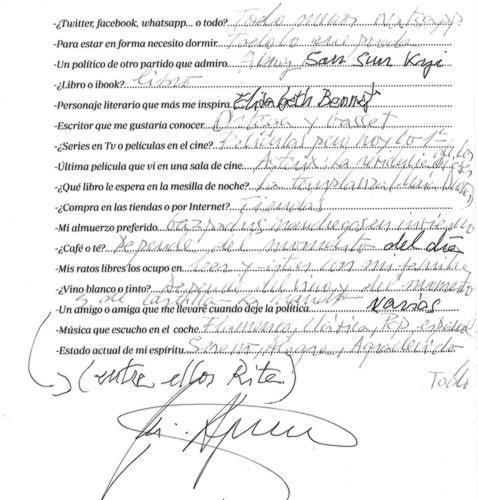 -¿Twitter, facebook, whatsapp... o todo? Todo menos
-Para estar en forma necesito dormir. Todo lo que pueda
-Un político de otro partido que admiro. San Sun Kyi
-¿Libro o ibook? libro
-Personaje literario que más me inspira. Elisabeth Bennet
-Escritor que me gustaría conocer. Ortega y Gasset
-¿Series en Tv o películas en el cine? Películas
-Última película que vi en una sala de cine.
-¿Qué libro le espera en la mesilla de noche? La templanza (María Dueñas)
-¿Compra en las tiendas o por Internet? Tiendas
-Mi almuerzo preferido. gazpachos manchegos en invierno
-¿Café o té? Depende del momento del día
-Mis ratos libres los ocupo en leer y estar con mi familia
-¿Vino blanco o tinto? Depende del vino y del momento
y de Castilla-La Mancha
-Un amigo o amiga que me llevaré cuando deje la política. varios
-Música que escucho en el coche. Flamenco, Clásica, Pop español
-Estado actual de mi espíritu. Sereno, Alegre y Agradecido
(entre ellos Rita) Todo